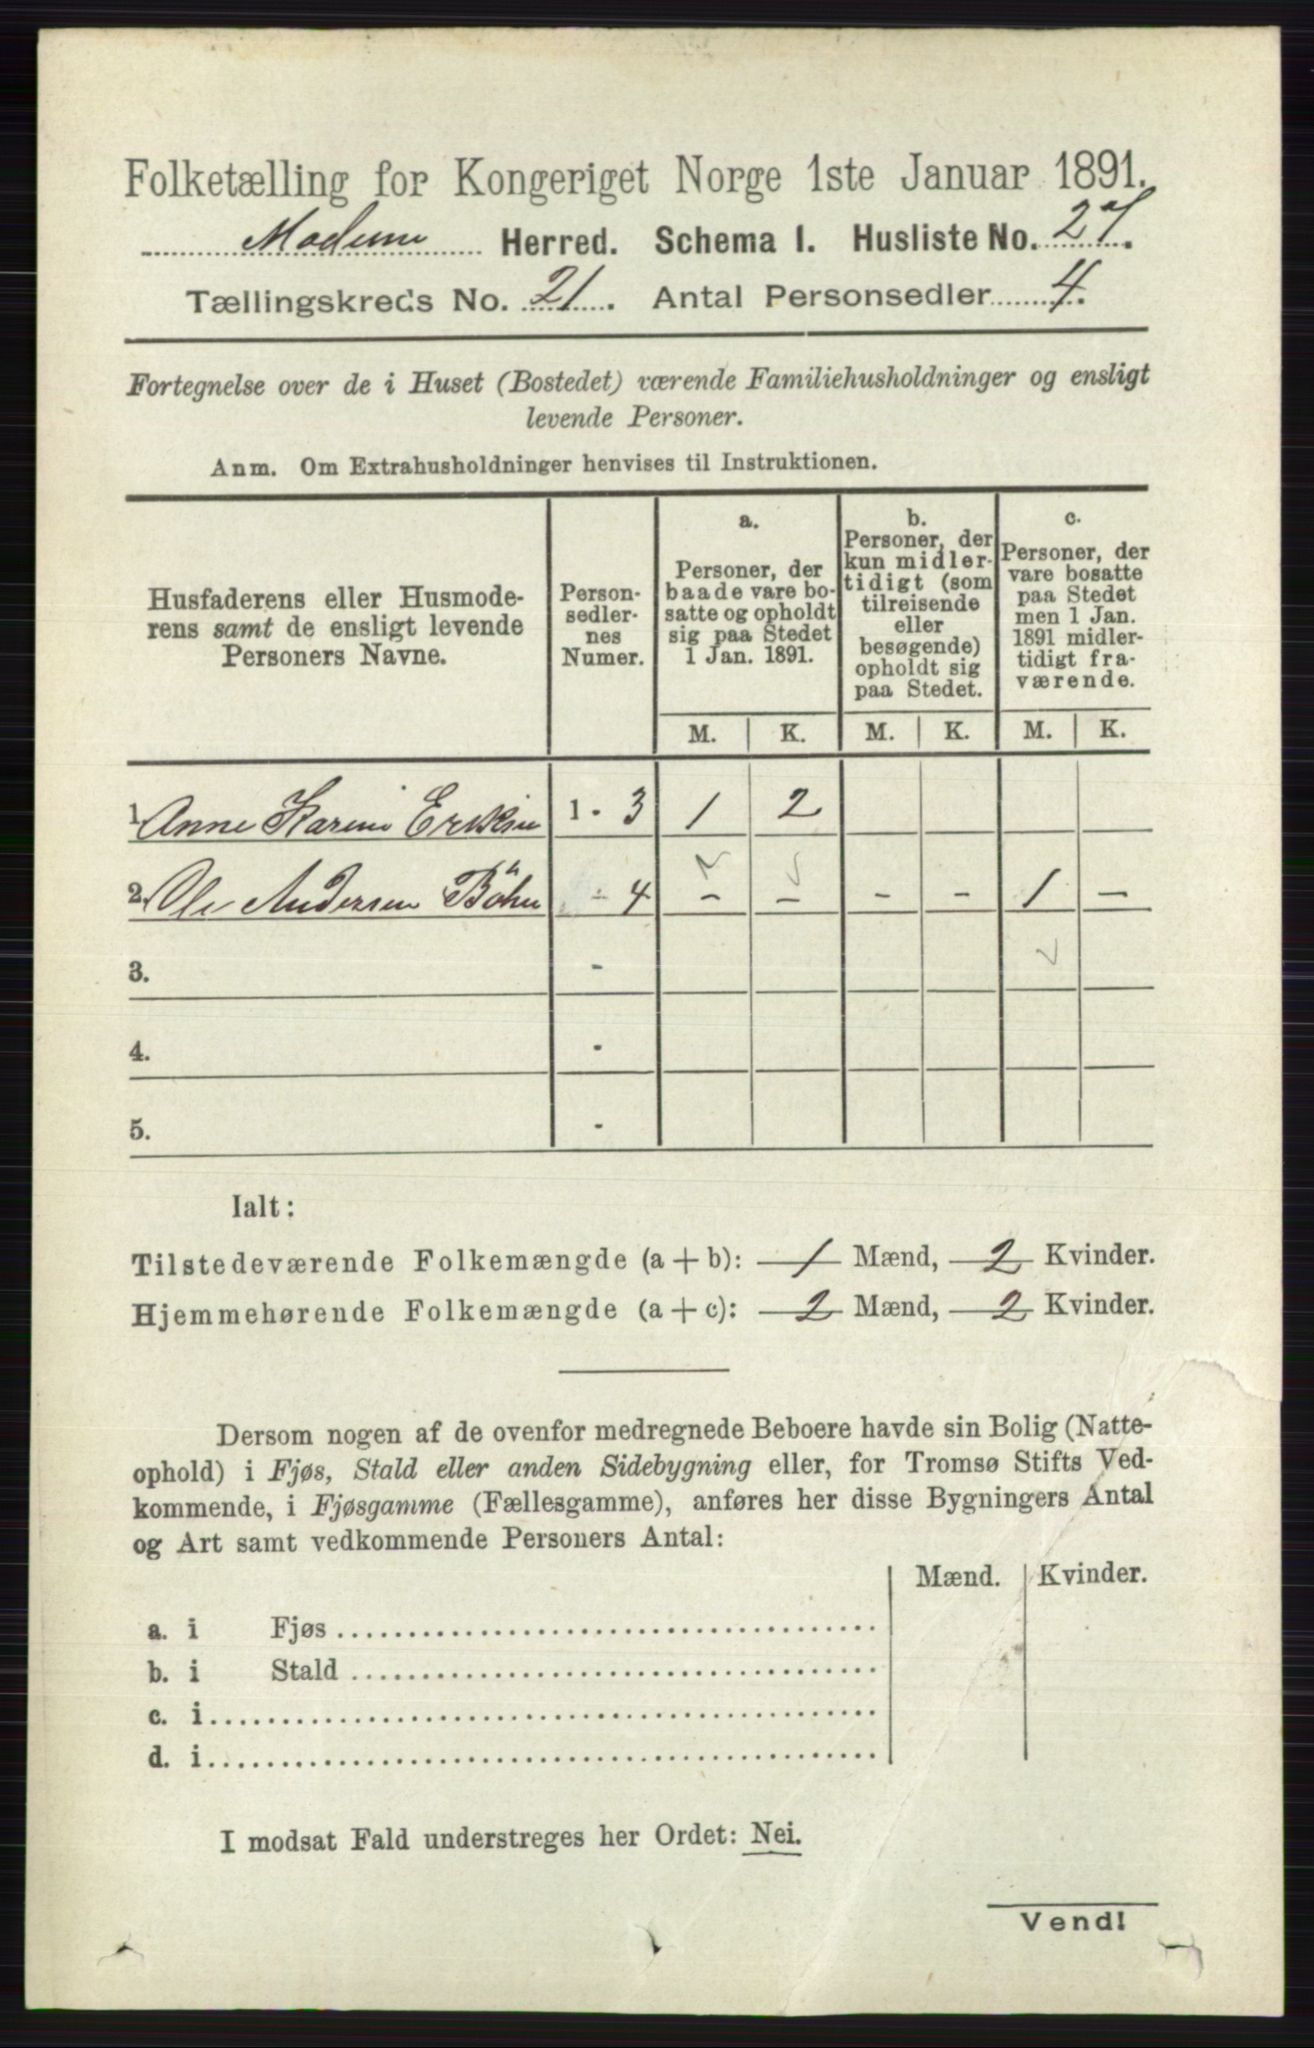 Folketælling for Kongeriget Norge 1ste Januar 1891.
Modum Herred. Schema I. Husliste No. 27.
Tællingskreds No. 21. Antal Personsedler 4.
Fortegnelse over de i Huset (Bostedet) værende Familiehusholdninger og ensligt
levende Personer.
Anm. Om Extrahusholdninger henvises til Instruktionen.
Husfaderens eller Husmode-
rens samt de ensligt levende
Personers Navne.
Person-
sedler-
nes
Numer.
a.
Personer, der
baade vare bo-
satte og opholdt
sig paa Stedet
1 Jan. 1891.
b.
Personer, der
kun midler-
tidigt (som
tilreisende
eller
besøgende)
opholdt sig
paa Stedet.
c.
Personer, der
vare bosatte
paa Stedet
men 1 Jan.
1891 midler-
tidigt fra-
værende.
M. K. M. K. M. K.
1. Anne Karine 1 - 3 1 2
2. Ole Andersen Böhn - 4 - - - - 1 -
3. -
4. -
5. -
Ialt:
Tilstedeværende Folkemængde (a + b): 1 Mænd, 2 Kvinder.
Hjemmehørende Folkemængde (a + c): 2 Mænd, 2 Kvinder.
Dersom nogen af de ovenfor medregnede Beboere havde sin Bolig (Natte-
ophold) i Fjøs, Stald eller anden Sidebygning eller, for Tromsø Stifts Ved-
kommende, i Fjøsgamme (Fællesgamme), anføres her disse Bygningers Antal
og Art samt vedkommende Personers Antal:
Mænd. Kvinder.
a. i Fjøs
b. i Stald
c. i
d. i
I modsat Fald understreges her Ordet: Nei.
Vend!